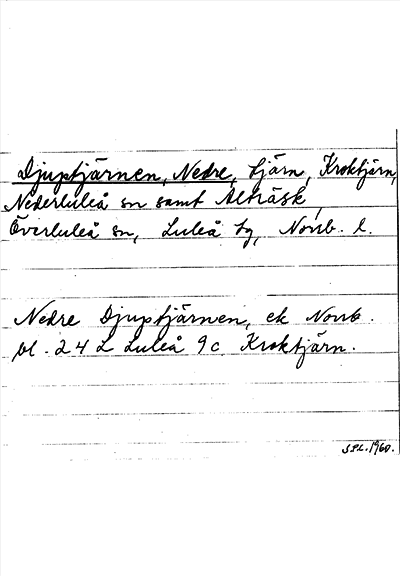 Djuptjärnen, Nedre, tjärn, Kroktjärn,
Nederluleå sn samt Alträsk,
Överluleå sn, Luleå tg, Norrb. l.
Nedre Djuptjärnen, ek Norrb.
bl. 24 L Luleå 9c Kroktjärn.
SPL. 1960.